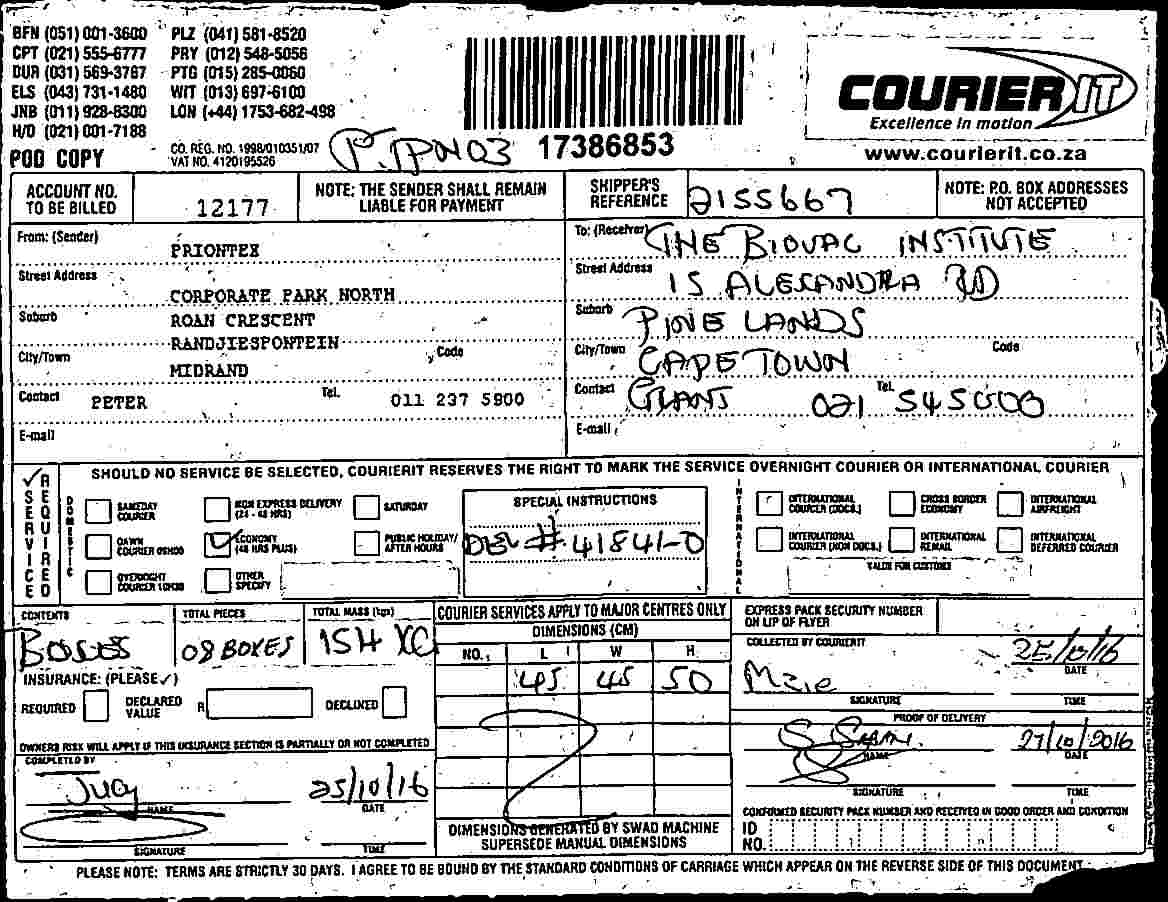 BFN (051) 001-3600 PLZ (041) 581-8520
CPT (021) 555-6777 PRY (012) 548-5056
DUR (031) 569-3767 PTG (015) 285-0060
ELS (043) 731-1480 WIT (013) 697-6100
JNB (011) 928-8300 LON (+44) 1753-682-498
H/O (021) 001-7188
POD COPY
CO. REG. NO. 1998/010351/07
VAT NO. 4120195526
17386853
COURIER IT
Excellence in motion
www.courierit.co.za
ACCOUNT NO. TO BE BILLED 12177
NOTE: THE SENDER SHALL REMAIN LIABLE FOR PAYMENT
SHIPPER'S REFERENCE 2155667
NOTE: P.O. BOX ADDRESSES NOT ACCEPTED
From: (Sender) PRIONTEX
Street Address CORPORATE PARK NORTH
Suburb ROAN CRESCENT
RANDJIESFONTEIN
City/Town MIDRAND Code
Contact PETER Tel. 011 237 5900
E-mail
To: (Receiver) THE BIOVAC INSTITUTE
Street Address 15 ALEXANDRA RD
Suburb PINE LANDS
City/Town CAPE TOWN Code
Contact GRANT Tel. 021 545000
E-mail
SERVICE REQUIRED
SHOULD NO SERVICE BE SELECTED, COURIERIT RESERVES THE RIGHT TO MARK THE SERVICE OVERNIGHT COURIER OR INTERNATIONAL COURIER
DOMESTIC
SAMEDAY COURIER
NON EXPRESS DELIVERY (24 - 48 HRS)
SATURDAY
DAWN COURIER 09H00
ECONOMY (48 HRS PLUS)
PUBLIC HOLIDAY/ AFTER HOURS
OVERNIGHT COURIER 10H30
OTHER SPECIFY
SPECIAL INSTRUCTIONS
DEL # 41841-0
INTERNATIONAL
INTERNATIONAL COURIER (DOCS.)
CROSS BORDER ECONOMY
INTERNATIONAL AIRFREIGHT
INTERNATIONAL COURIER (NON DOCS.)
INTERNATIONAL REMAIL
INTERNATIONAL DEFERRED COURIER
VALUE FOR CUSTOMS
CONTENTS TOTAL PIECES TOTAL MASS (kgs)
08 BOXES
INSURANCE: (PLEASE ✓)
REQUIRED DECLARED VALUE R DECLINED
OWNERS RISK WILL APPLY IF THIS INSURANCE SECTION IS PARTIALLY OR NOT COMPLETED
COMPLETED BY
25/10/16
NAME DATE
SIGNATURE TIME
COURIER SERVICES APPLY TO MAJOR CENTRES ONLY
DIMENSIONS (CM)
NO. L W H
45 45 50
DIMENSIONS GENERATED BY SWAD MACHINE SUPERSEDE MANUAL DIMENSIONS
EXPRESS PACK SECURITY NUMBER ON LIP OF FLYER
COLLECTED BY COURIERIT
25/10/16
DATE
SIGNATURE TIME
PROOF OF DELIVERY
27/10/2016
NAME DATE
SIGNATURE TIME
CONFIRMED SECURITY PACK NUMBER AND RECEIVED IN GOOD ORDER AND CONDITION
ID NO.
PLEASE NOTE: TERMS ARE STRICTLY 30 DAYS. I AGREE TO BE BOUND BY THE STANDARD CONDITIONS OF CARRIAGE WHICH APPEAR ON THE REVERSE SIDE OF THIS DOCUMENT